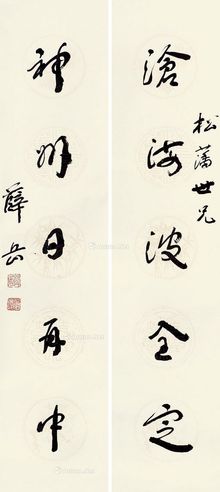 松藩世兄
滄海波全定
神州日再中
薛岳